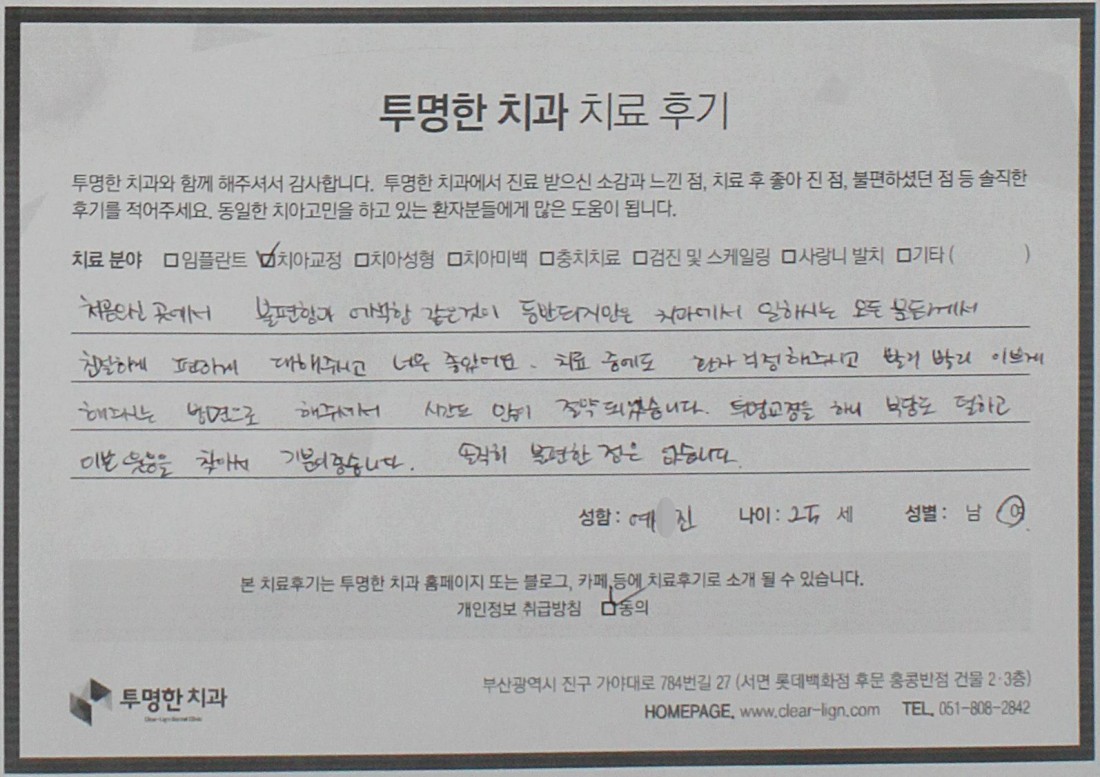 투명한 치과 치료 후기
투명한 치과와 함께 해주셔서 감사합니다. 투명한 치과에서 진료 받으신 소감과 느낀 점, 치료 후 좋아 진 점, 불편하셨던 점 등 솔직한
후기를 적어주세요. 동일한 치아고민을 하고 있는 환자분들에게 많은 도움이 됩니다.
치료 분야 □임플란트 ☑치아교정 □치아성형 □치아미백 □충치치료 □검진 및 스케일링 □사랑니 발치 □기타 ( )
곳에서 불편함과 어색함 같은것이 동반되지만은 치과에서 일하시는 모든 분들께서
친절하게 편하게 대해주시고 너무 좋았어요. 치료 중에도 환자 걱정해주시고 빨리 빨리 이쁘게
방면으로 해주셔서 시간도 많이 절약되었습니다. 투명교정을 하니 부담도 덜하고
이쁜 웃음을 찾아서 기분이좋습니다. 솔직히 불편한 점은 없습니다.
성함 : 예 진 나이 : 25 세 성별 : 남 여
본 치료후기는 투명한 치과 홈페이지 또는 블로그, 카페 등에 치료후기로 소개 될 수 있습니다.
개인정보 취급방침 ☑동의
투명한 치과
부산광역시 진구 가야대로 784번길 27 (서면 롯데백화점 후문 홍콩반점 건물 2·3층)
HOMEPAGE. www.clear-lign.com TEL. 051-808-2842